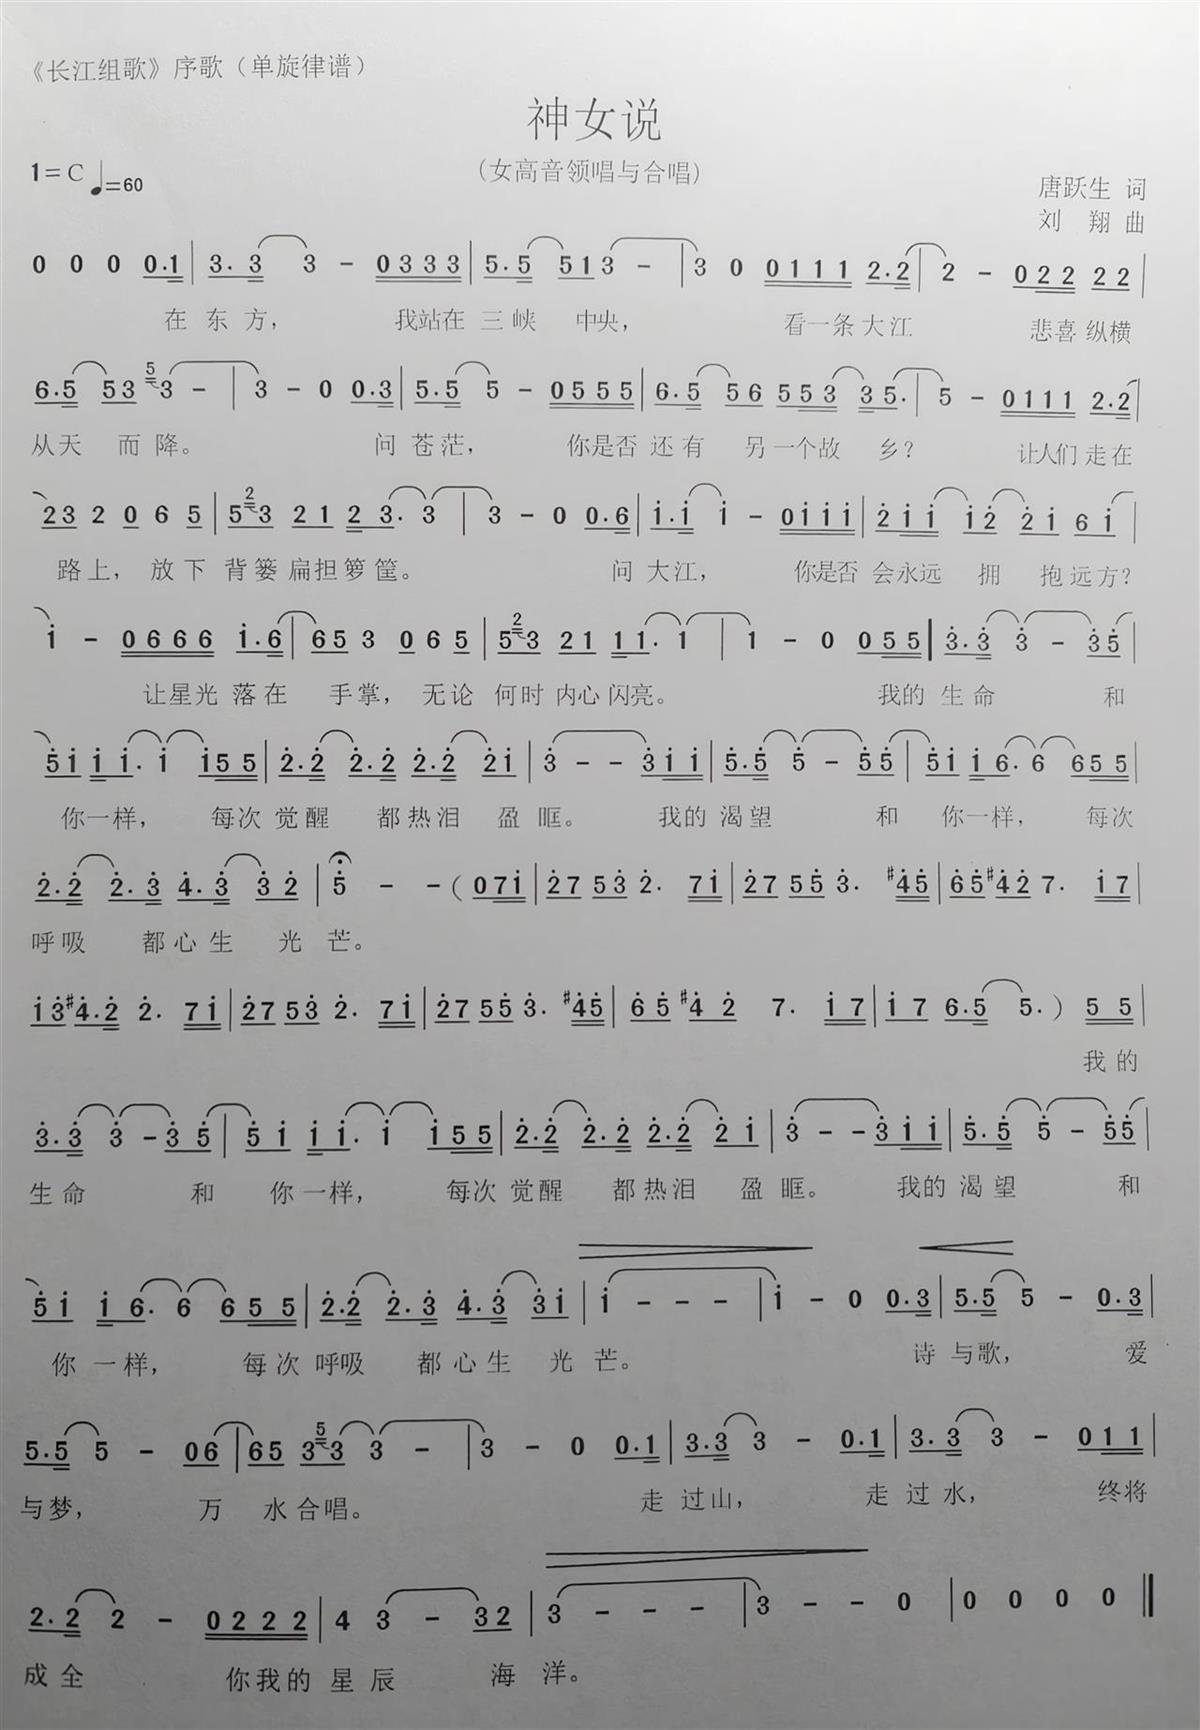 《长江组歌》序歌（单旋律谱）
神女说
（女高音领唱与合唱）
1=C ♩=60
唐跃生 词
刘 翔 曲
0 0 0 0.1 | 3.3 3 - 0333 | 5.5 513 - | 3 0 0111 2.2 | 2 - 022 22 |
在 东 方， 我站在 三 峡 中央， 看一条 大 江 悲喜 纵横
6.5 53 5 3 - | 3 - 0 0.3 | 5.5 5 - 0555 | 6.5 56 553 35. | 5 - 0111 2.2 |
从天 而 降。 问 苍 茫， 你是否 还 有 另 一个故 乡？ 让人们 走 在
23 2 0 6 5 | 5 2 3 21 2 3. 3 | 3 - 0 0.6 | i.i i - 0iii | 2ii i2 2i 6i |
路上， 放 下 背 篓 扁担 箩 筐。 问 大 江， 你是否 会永远 拥 抱远方？
i - 0666 i.6 | 653 065 | 5 2 3 21 11. 1 | 1 - 0 055 | 3.3 3 - 35 |
让星光 落 在 手 掌， 无论 何时 内心 闪亮。 我的 生 命 和
5i i i. i i55 | 2.2 2.2 2.2 2i | 3 - - 3ii | 5.5 5 - 55 | 5i i 6. 6 655 |
你一样， 每次 觉 醒 都 热 泪 盈 眶。 我的 渴 望 和 你 一样， 每次
2.2 2.3 4.3 32 | 5 - - （07i | 27 53 2. 7i | 27 55 3. #45 | 65 #42 7. i7 |
呼吸 都 心 生 光 芒。
i3 #4.2 2. 7i | 27 53 2. 7i | 27 55 3. #45 | 65 #4 2 7. i7 | i7 6.5 5. ） 55 |
我 的
3.3 3 - 35 | 5i i i. i i55 | 2.2 2.2 2.2 2i | 3 - - 3ii | 5.5 5 - 55 |
生 命 和 你 一 样， 每次 觉醒 都 热 泪 盈 眶。 我的 渴 望 和
5i i 6. 6 655 | 2.2 2.3 4.3 3i | i - - - | i - 0 0.3 | 5.5 5 - 0.3 |
你 一 样， 每 次 呼吸 都 心 生 光 芒。 诗 与 歌， 爱
5.5 5 - 06 | 65 3 5 3 3 - | 3 - 0 0.1 | 3.3 3 - 0.1 | 3.3 3 - 011 |
与 梦， 万 水 合唱。 走 过 山， 走 过 水， 终将
2.2 2 - 0222 | 4 3 - 32 | 3 - - - | 3 - - 0 | 0 0 0 0 ‖
成 全 你我的 星 辰 海 洋。